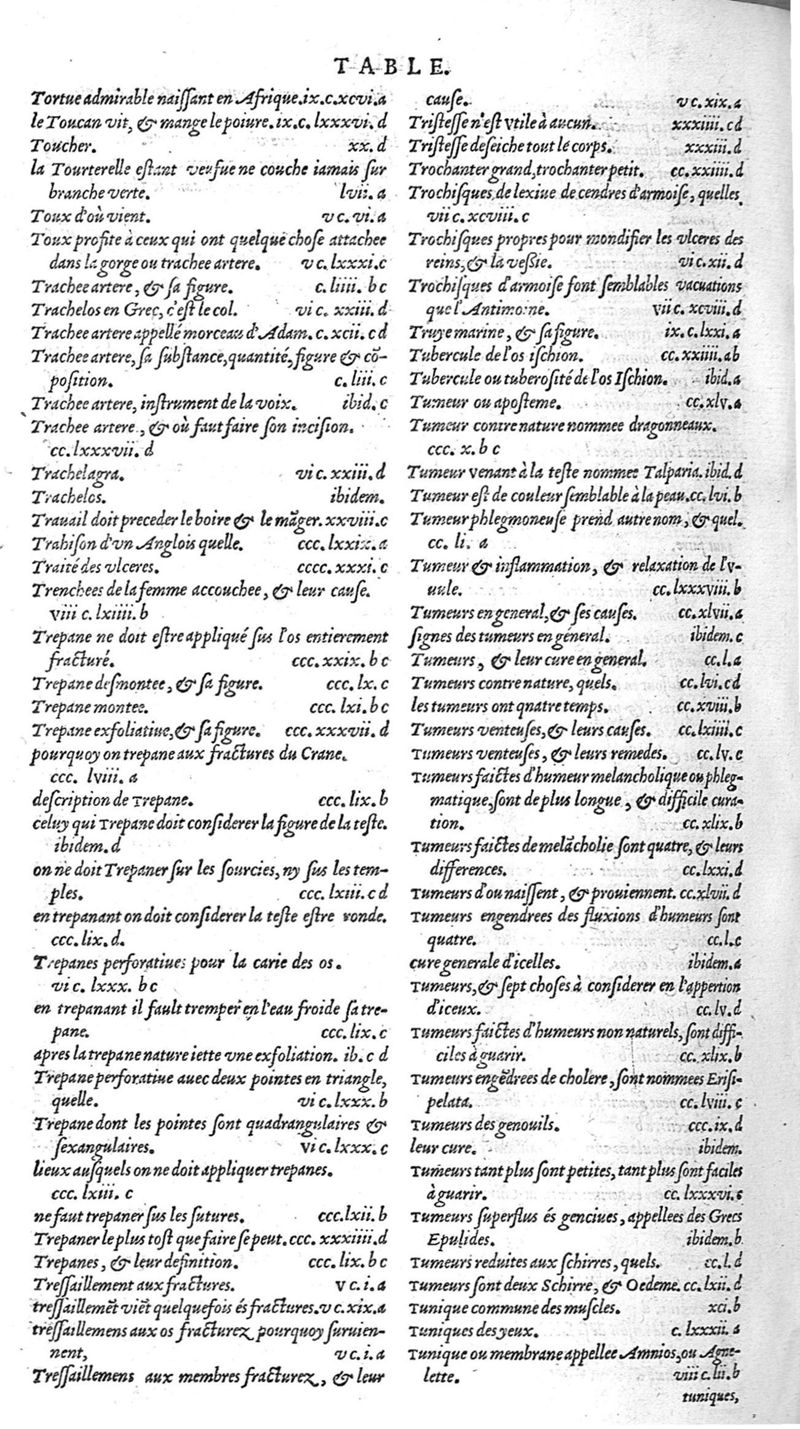 TABLE.
Tortue admirable naiſſant en Afrique. ix. c. xcvi. a
le Toucan vit, & mange le poiure. ix. c. lxxxvi. d
Toucher. xx. d
la Tourterelle eſtant veufue ne couche iamais ſur
branche verte. lvii. a
Toux d'où vient. v c. vi. a
Toux profite à ceux qui ont quelque choſe attachee
dans la gorge ou trachee artere. v c. lxxxi. c
Trachee artere, & ſa figure. c. liiii. b c
Trachelos en Grec, c'eſt le col. vi c. xxiii. d
Trachee artere appellé morceau d'Adam. c. xcii. c d
Trachee artere, ſa ſubſtance, quantité, figure & cõ-
poſition. c. liii. c
Trachee artere, inſtrument de la voix. ibid. c
Trachee artere, & où faut faire ſon inciſion.
cc. lxxxvii. d
Trachelagra. vi c. xxiii. d
Trachelos. ibidem.
Trauail doit preceder le boire & le mãger. xxviii. c
Trahiſon d'vn Anglois quelle. ccc. lxxix. a
Traité des vlceres. cccc. xxxi. c
Trenchees de la femme accouchee, & leur cauſe.
viii c. lxiiii. b
Trepane ne doit eſtre appliqué ſus l'os entierement
fracturé. ccc. xxix. b c
Trepane deſmontee, & ſa figure. ccc. lx. c
Trepane montee. ccc. lxi. b c
Trepane exfoliatiue, & ſa figure. ccc. xxxvii. d
pourquoy on trepane aux fractures du Crane.
ccc. lviii. a
deſcription de Trepane. ccc. lix. b
celuy qui Trepane doit conſiderer la figure de la teſte.
ibidem. d
on ne doit Trepaner ſur les ſourcies, ny ſus les tem-
ples. ccc. lxiii. c d
en trepanant on doit conſiderer la teſte eſtre ronde.
ccc. lix. d.
Trepanes perforatiues pour la carie des os.
vi c. lxxx. b c
en trepanant il fault tremper en l'eau froide ſa tre-
pane. ccc. lix. c
apres la trepane nature iette vne exfoliation. ib. c d
Trepane perforatiue auec deux pointes en triangle,
quelle. vi c. lxxx. b
Trepane dont les pointes ſont quadrangulaires &
ſexangulaires. vi c. lxxx. c
lieux auſquels on ne doit appliquer trepanes.
ccc. lxiii. c
ne faut trepaner ſus les ſutures. ccc. lxii. b
Trepaner le plus toſt que faire ſe peut. ccc. xxxiiii. d
Trepanes, & leur definition. ccc. lix. b c
Treſſaillement aux fractures. v c. i. a
treſſaillemẽt viẽt quelquefois és fractures. v c. xix. a
treſſaillemens aux os fracturez pourquoy ſuruien-
nent, v c. i. a
Treſſaillemens aux membres fracturez, & leur
cauſe. v c. xix. a
Triſteſſe n'eſt vtile à aucun. xxxiiii. c d
Triſteſſe deſeiche tout le corps. xxxiii. d
Trochanter grand, trochanter petit. cc. xxiiii. d
Trochiſques de lexiue de cendres d'armoiſe, quelles
vii c. xcviii. c
Trochiſques propres pour mondifier les vlceres des
reins, & la veſſie. vi c. xii. d
Trochiſques d'armoiſe font ſemblables vacuations
que l'Antimoine. vii c. xcviii. d
Truye marine, & ſa figure. ix. c. lxxi. a
Tubercule de l'os iſchion. cc. xxiiii. ab
Tubercule ou tuberoſité de l'os Iſchion. ibid. a
Tumeur ou apoſteme. cc. xlv. a
Tumeur contre nature nommee dragonneaux.
ccc. x. b c
Tumeur venant à la teſte nommee Talparia. ibid. d
Tumeur eſt de couleur ſemblable à la peau. cc. lvi. b
Tumeur phlegmoneuſe prend autre nom, & quel.
cc. li. a
Tumeur & inflammation, & relaxation de l'v-
uule. cc. lxxxviii. b
Tumeurs en general, & ſes cauſes. cc. xlvii. a
ſignes des tumeurs en general. ibidem. c
Tumeurs, & leur cure en general. cc. l. a
Tumeurs contre nature, quels. cc. lvi. cd
les tumeurs ont qnatre temps. cc. xviii. b
Tumeurs venteuſes, & leurs cauſes. cc. lxiiii. c
Tumeurs venteuſes, & leurs remedes. cc. lv. c
Tumeurs faictes d'humeur melancholique ou phleg-
matique, ſont de plus longue, & difficile cura-
tion. cc. xlix. b
Tumeurs faictes de melãcholie ſont quatre, & leurs
differences. cc. lxxi. d
Tumeurs d'ou naiſſent, & prouiennent. cc. xlvii. d
Tumeurs engendrees des fluxions d'humeurs ſont
quatre. cc. l. c
cure generale d'icelles. ibidem. a
Tumeurs, & ſept choſes à conſiderer en l'appertion
d'iceux. cc. lv. d
Tumeurs faictes d'humeurs non naturels, ſont diffi-
ciles à guarir. cc. xlix. b
Tumeurs engẽdrees de cholere, ſont nommees Eriſi-
pelata. cc. lviii. c
Tumeurs des genouils. ccc. ix. d
leur cure. ibidem.
Tumeurs tant plus ſont petites, tant plus ſont faciles
à guarir. cc. lxxxvi. c
Tumeurs ſuperflus és genciues, appellees des Grecs
Epulides. ibidem. b
Tumeurs reduites aux ſchirres, quels. cc. l. d
Tumeurs ſont deux Schirre, & Oedeme. cc. lxii. d
Tunique commune des muſcles. xci. b
Tuniques des yeux. c. lxxxii. a
Tunique ou membrane appellee Amnios, ou Agne-
lette. viii c. lii. b
tuniques,